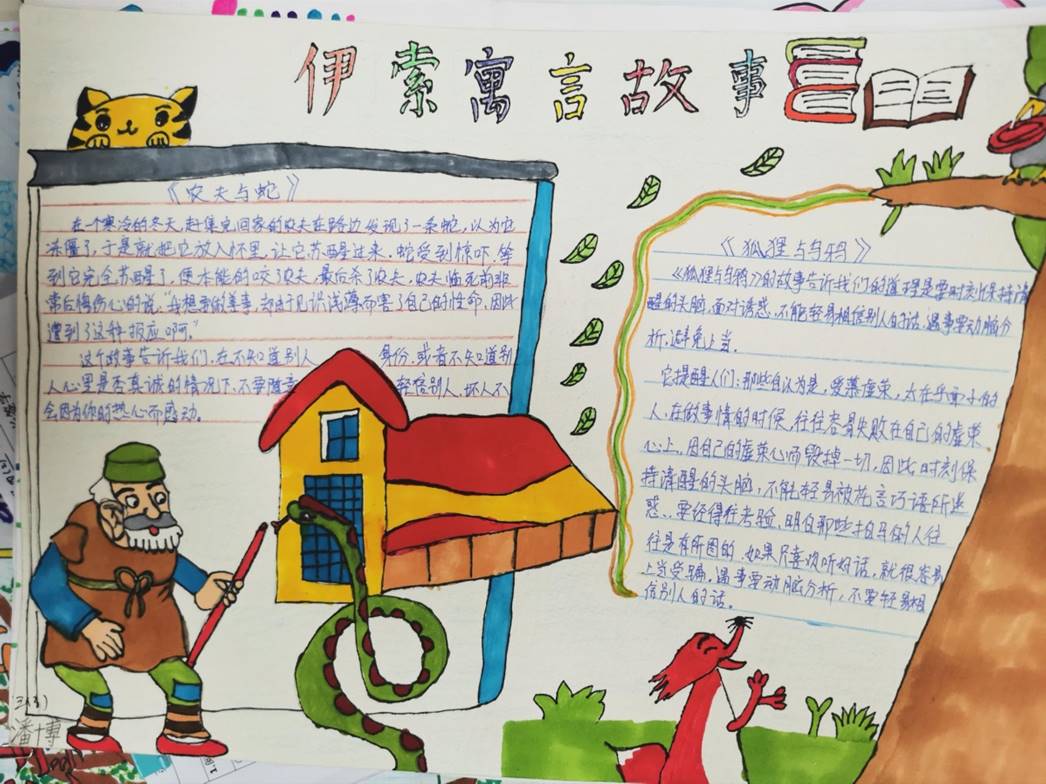 伊索寓言故事
《农夫与蛇》
在一个寒冷的冬天,赶集完回家的农夫在路边发现了一条蛇,以为它
冻僵了,于是就把它放入怀里,让它苏醒过来.蛇受到惊吓,等
到它完全苏醒了,便本能的咬了农夫,最后杀了农夫,农夫临死前非
常后悔伤心的说:"我想要做善事,却由于见识浅薄而害了自己的性命,因此
遭到了这种报应啊."
这个故事告诉我们,在不知道别人 身份,或者不知道别
人心里是否真诚的情况下,不要随意 轻信别人,坏人不
会因为你的热心而感动。
《狐狸与乌鸦》
《狐狸与乌鸦》的故事告诉我们的道理是要时刻保持清
醒的头脑,面对诱惑,不能轻易相信别人的话.遇事要动脑分
析,避免上当.
它提醒人们:那些自认为是,爱慕虚荣,太在乎面子的
人,在做事情的时候,往往容易失败在自己的虚荣
心上,因自己的虚荣心而毁掉一切,因此时刻保
持清醒的头脑,不能轻易被花言巧语所迷
惑.要经得住考验,明白那些拍马的人往
往是有所图的,如果只喜欢听好话,就很容易
上当受骗,遇事要动脑分析,不要轻易相
信别人的话。
潘博